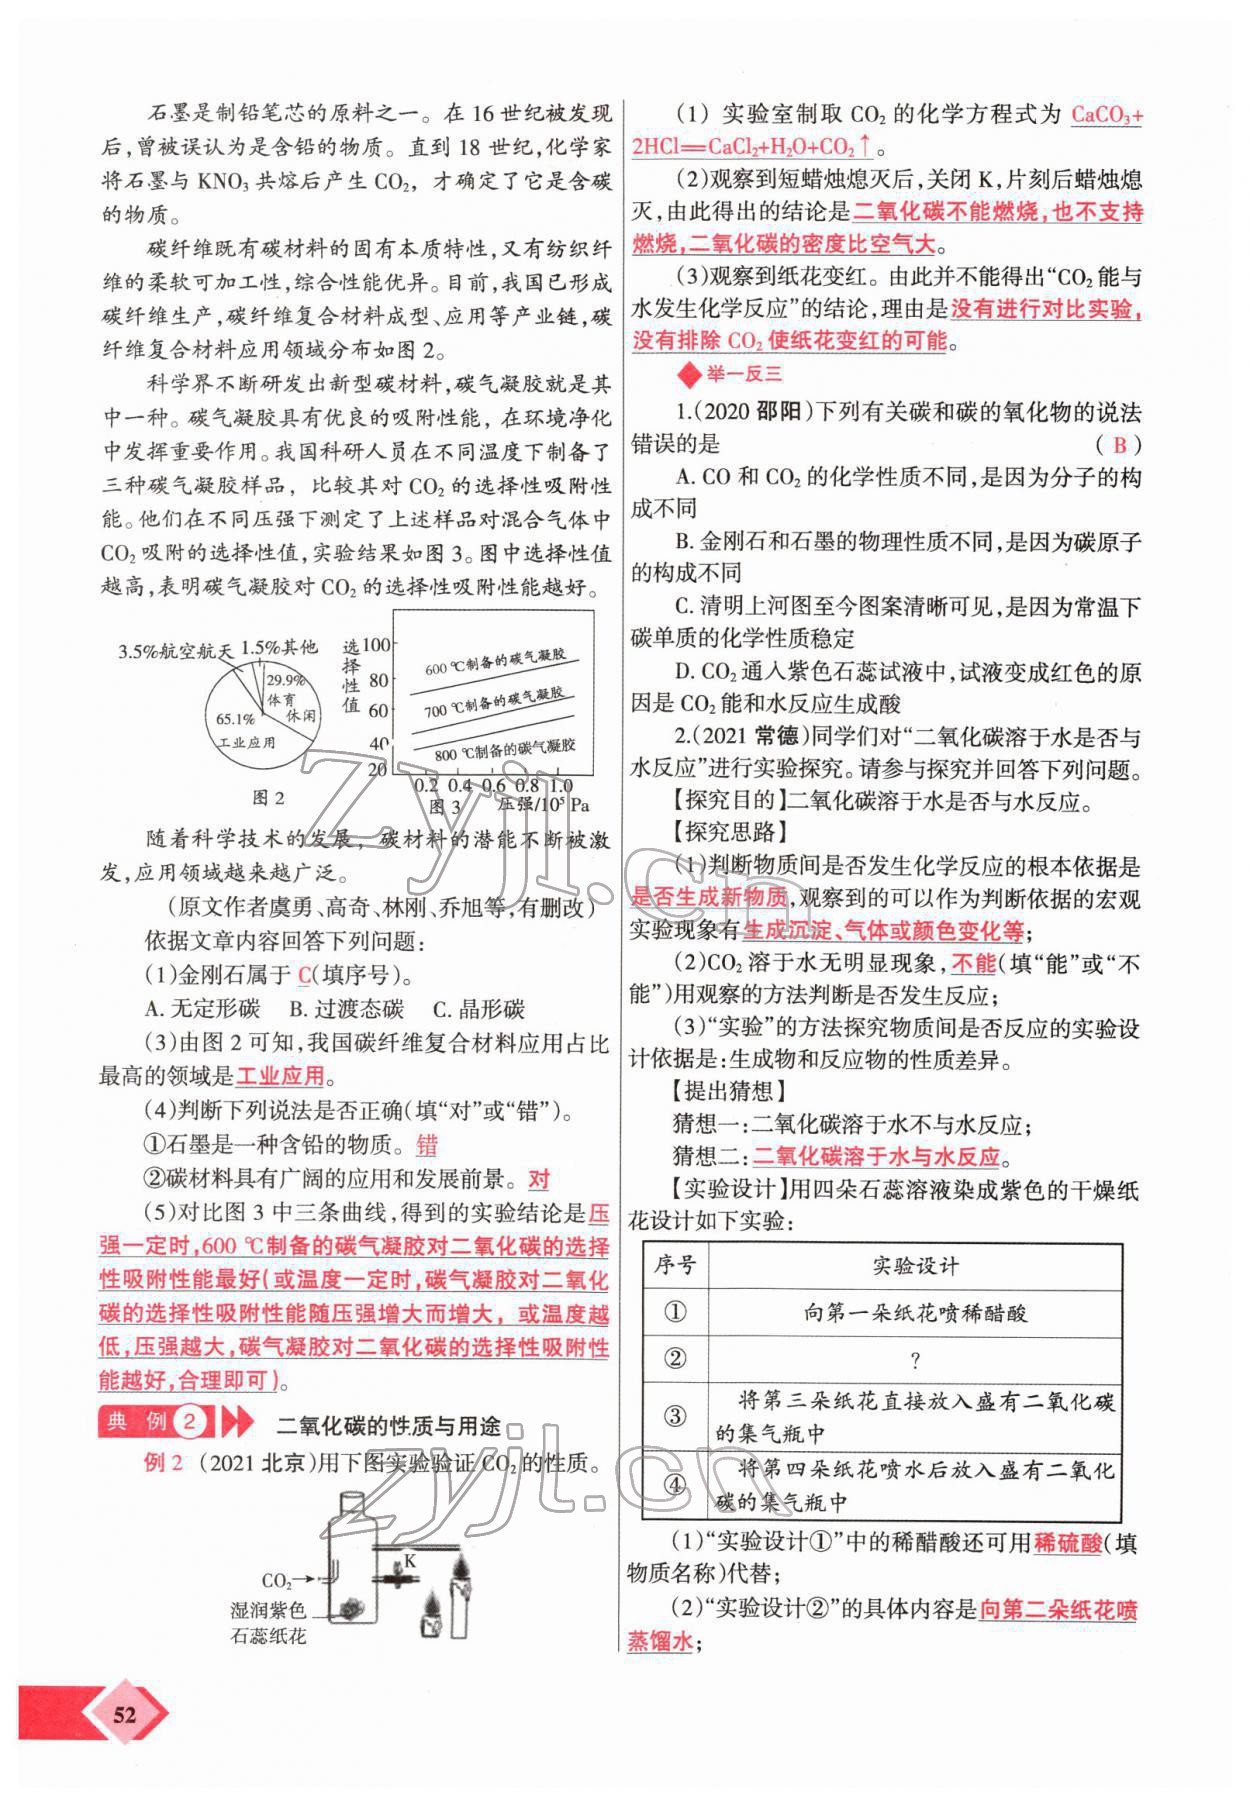 石墨是制铅笔芯的原料之一。在 16 世纪被发现
后,曾被误认为是含铅的物质。直到 18 世纪,化学家
将石墨与 KNO₃ 共熔后产生 CO₂，才确定了它是含碳
的物质。
碳纤维既有碳材料的固有本质特性,又有纺织纤
维的柔软可加工性,综合性能优异。目前,我国已形成
碳纤维生产,碳纤维复合材料成型、应用等产业链,碳
纤维复合材料应用领域分布如图 2。
科学界不断研发出新型碳材料,碳气凝胶就是其
中一种。碳气凝胶具有优良的吸附性能，在环境净化
中发挥重要作用。我国科研人员在不同温度下制备了
三种碳气凝胶样品，比较其对 CO₂ 的选择性吸附性
能。他们在不同压强下测定了上述样品对混合气体中
CO₂ 吸附的选择性值,实验结果如图 3。图中选择性值
越高,表明碳气凝胶对 CO₂ 的选择性吸附性能越好。
3.5%航空航天 1.5%其他
29.9%
体育
休闲
65.1%
工业应用
图 2
选择性值
100
80
60
40
20
600 ℃制备的碳气凝胶
700 ℃制备的碳气凝胶
800 ℃制备的碳气凝胶
0.2 0.4 0.6 0.8 1.0
图 3 压强/10⁵ Pa
随着科学技术的发展，碳材料的潜能不断被激
发,应用领域越来越广泛。
(原文作者虞勇、高奇、林刚、乔旭等,有删改)
依据文章内容回答下列问题:
(1)金刚石属于 C(填序号)。
A. 无定形碳 B. 过渡态碳 C. 晶形碳
(3)由图 2 可知,我国碳纤维复合材料应用占比
最高的领域是工业应用。
(4)判断下列说法是否正确(填“对”或“错”)。
①石墨是一种含铅的物质。错
②碳材料具有广阔的应用和发展前景。对
(5)对比图 3 中三条曲线,得到的实验结论是压
强一定时,600 ℃制备的碳气凝胶对二氧化碳的选择
性吸附性能最好(或温度一定时,碳气凝胶对二氧化
碳的选择性吸附性能随压强增大而增大，或温度越
低,压强越大,碳气凝胶对二氧化碳的选择性吸附性
能越好,合理即可)。
典 例 2 二氧化碳的性质与用途
例 2 (2021 北京)用下图实验验证 CO₂ 的性质。
K
CO₂
湿润紫色
石蕊纸花
52
(1) 实验室制取 CO₂ 的化学方程式为 CaCO₃+
2HCl══CaCl₂+H₂O+CO₂↑。
(2)观察到短蜡烛熄灭后,关闭 K,片刻后蜡烛熄
灭,由此得出的结论是二氧化碳不能燃烧,也不支持
燃烧,二氧化碳的密度比空气大。
(3)观察到纸花变红。由此并不能得出“CO₂ 能与
水发生化学反应”的结论,理由是没有进行对比实验,
没有排除 CO₂ 使纸花变红的可能。
举一反三
1.(2020 邵阳)下列有关碳和碳的氧化物的说法
错误的是 ( B )
A. CO 和 CO₂ 的化学性质不同,是因为分子的构
成不同
B. 金刚石和石墨的物理性质不同,是因为碳原子
的构成不同
C. 清明上河图至今图案清晰可见,是因为常温下
碳单质的化学性质稳定
D. CO₂ 通入紫色石蕊试液中,试液变成红色的原
因是 CO₂ 能和水反应生成酸
2.(2021 常德)同学们对“二氧化碳溶于水是否与
水反应”进行实验探究。请参与探究并回答下列问题。
【探究目的】二氧化碳溶于水是否与水反应。
【探究思路】
(1)判断物质间是否发生化学反应的根本依据是
是否生成新物质,观察到的可以作为判断依据的宏观
实验现象有生成沉淀、气体或颜色变化等;
(2)CO₂ 溶于水无明显现象,不能(填“能”或“不
能”)用观察的方法判断是否发生反应;
(3)“实验”的方法探究物质间是否反应的实验设
计依据是:生成物和反应物的性质差异。
【提出猜想】
猜想一:二氧化碳溶于水不与水反应;
猜想二:二氧化碳溶于水与水反应。
【实验设计】用四朵石蕊溶液染成紫色的干燥纸
花设计如下实验:
序号 实验设计
① 向第一朵纸花喷稀醋酸
② ?
③ 将第三朵纸花直接放入盛有二氧化碳
的集气瓶中
④ 将第四朵纸花喷水后放入盛有二氧化
碳的集气瓶中
(1)“实验设计①”中的稀醋酸还可用稀硫酸(填
物质名称)代替;
(2)“实验设计②”的具体内容是向第二朵纸花喷
蒸馏水;
zyjl.cn
zyjl.cn